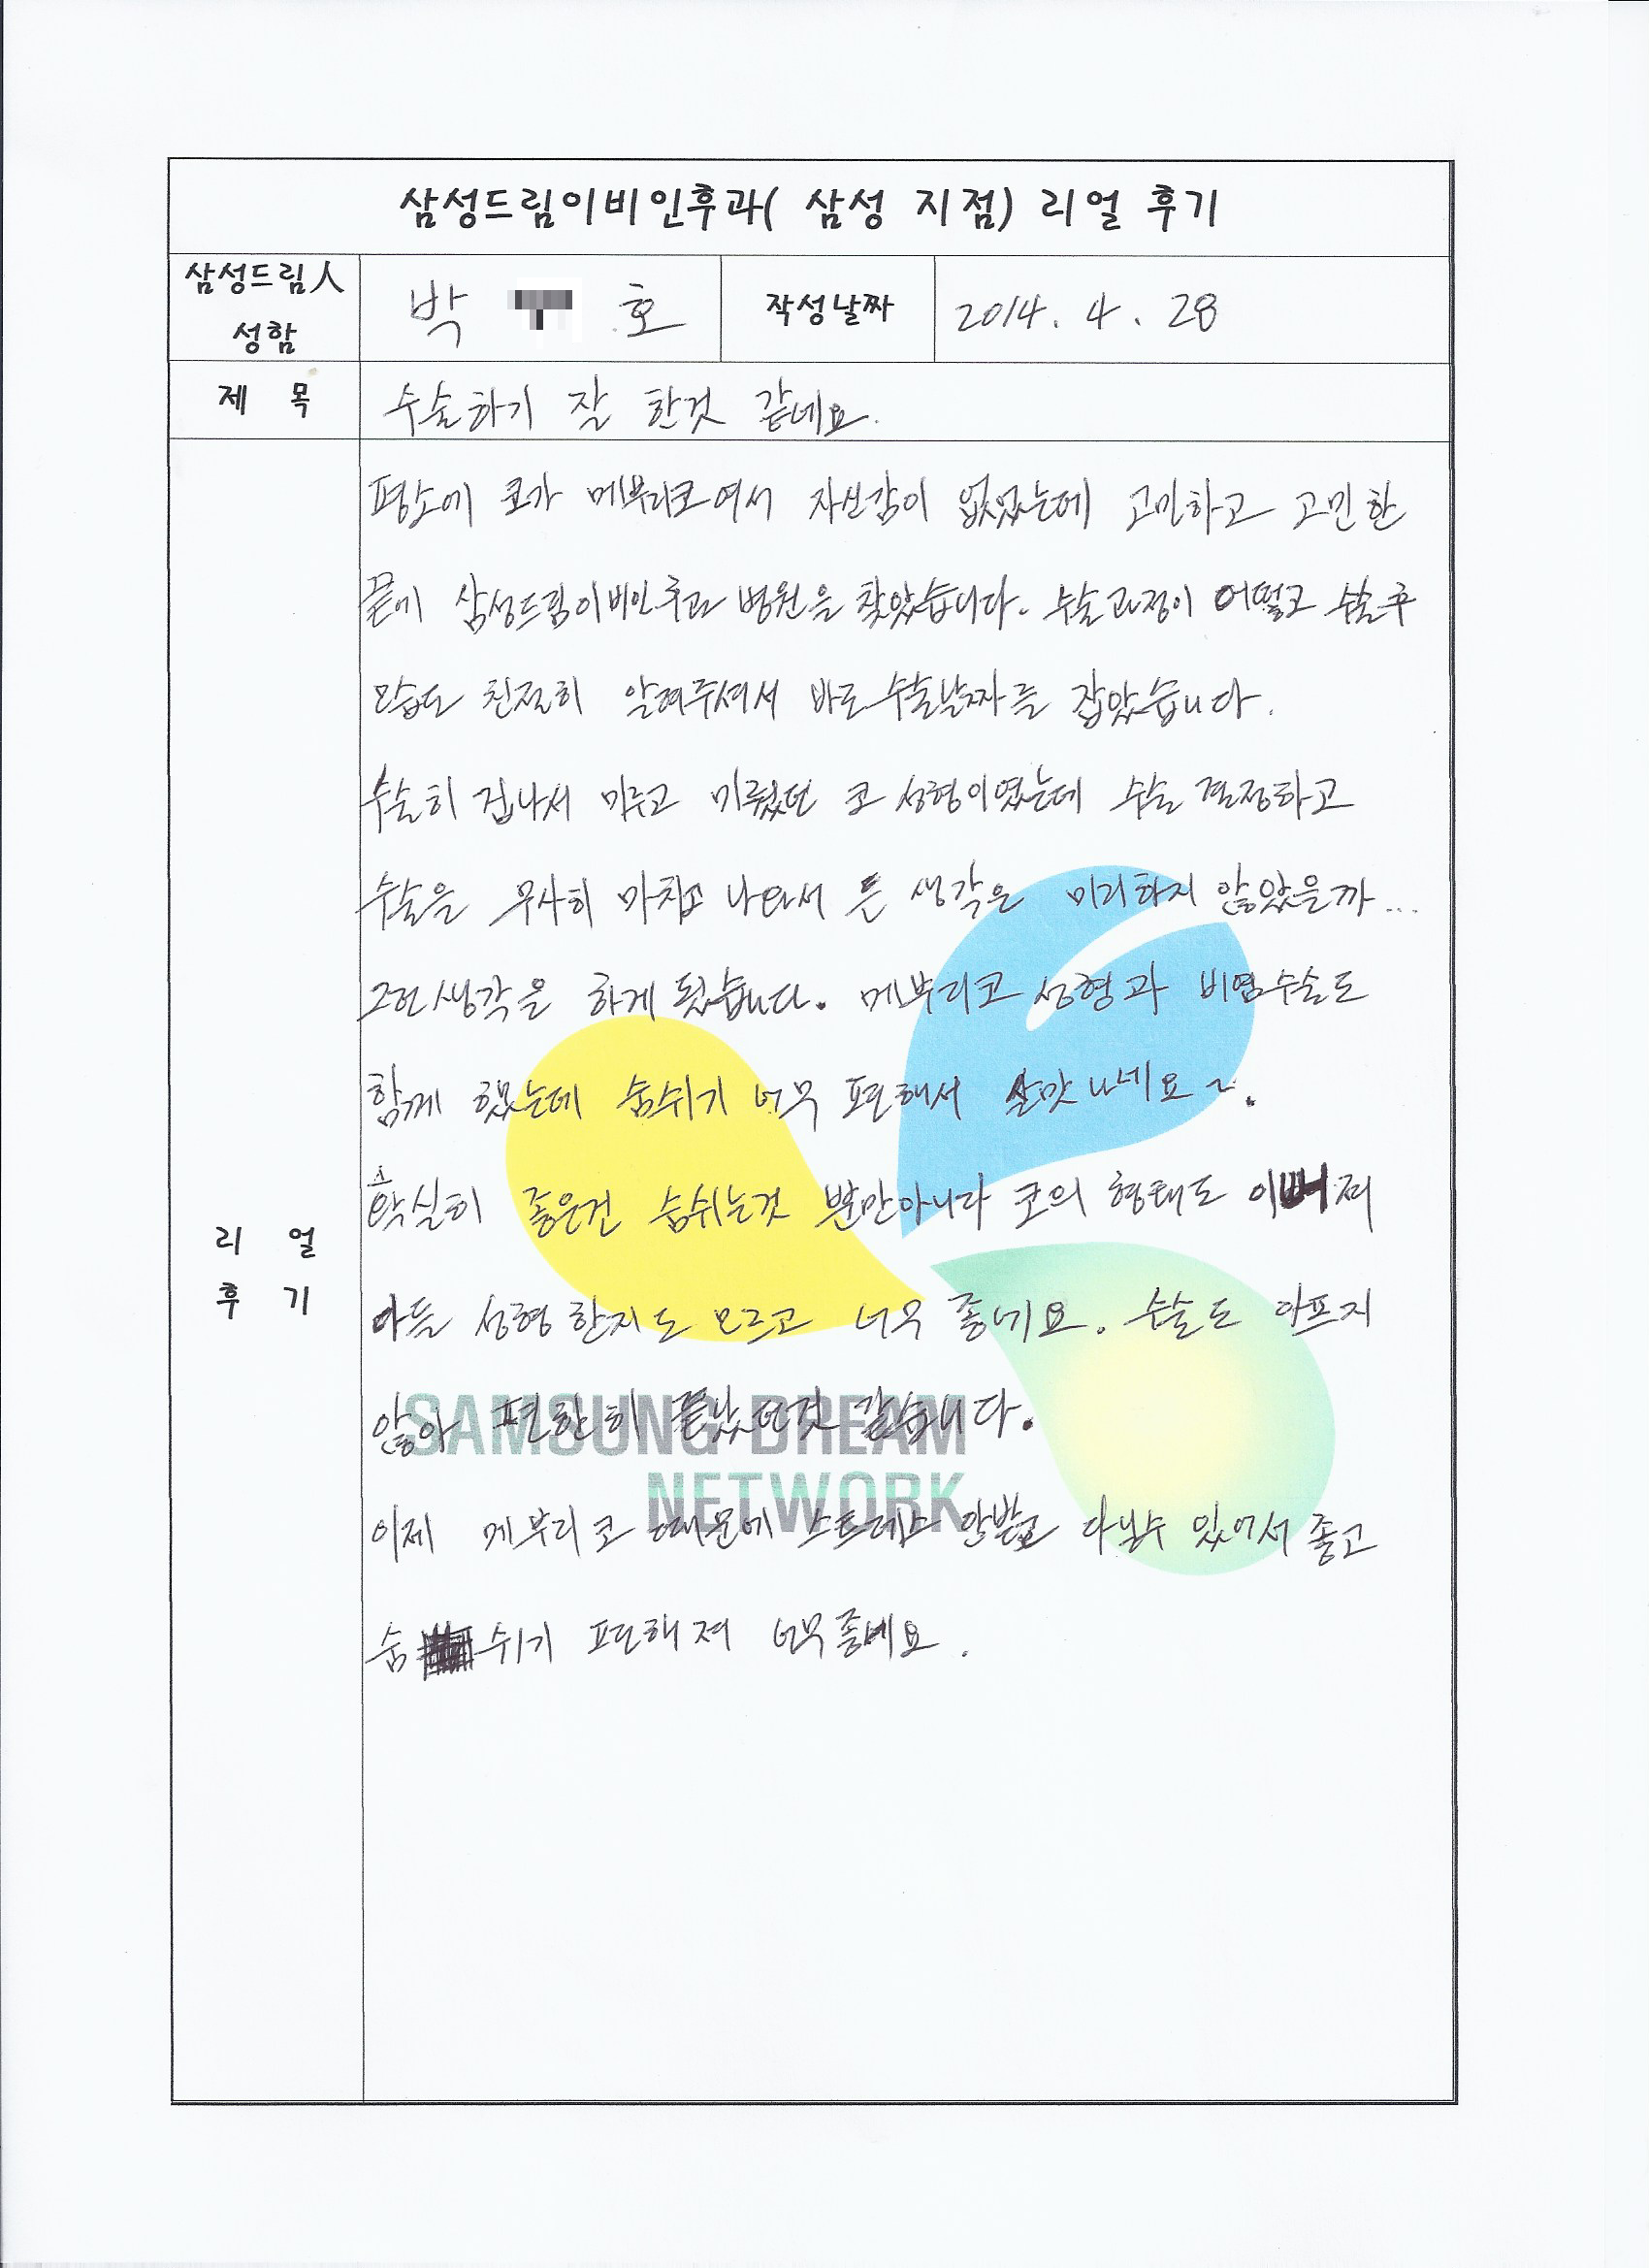 삼성드림이비인후과( 삼성 지점) 리얼 후기
삼성드림人 성함
박 호
작성날짜
2014. 4. 28
제 목
수술하기 잘 한것 같네요.
리 얼 후 기
평소에 코가 메부리코여서 자신감이 없었는데 고민하고 고민한
끝에 삼성드림이비인후과 병원을 찾았습니다. 수술과정이 어떻고 수술후
모습도 친절히 알려주셔서 바로 수술날짜를 잡았습니다.
수술히 겁나서 미루고 미뤘던 코 성형이였는데 수술 결정하고
수술을 무사히 마치고 나와서 든 생각은 미리하지 않았을까...
그런생각을 하게 됬습니다. 메부리코 성형과 비염수술도
함께 했는데 숨쉬기 너무 편해서 살맛나네요~.
확실히 좋은건 숨쉬는것 뿐만아니라 코의 형태도 이뻐져
아들 성형한지도 모르고 너무 좋네요. 수술도 아프지
않아 편안히 끝났던것 같습니다.
이제 메부리코 때문에 스트레스 안받고 다닐수 있어서 좋고
숨 쉬기 편해져 너무좋네요.
SAMSUNG DREAM
NETWORK